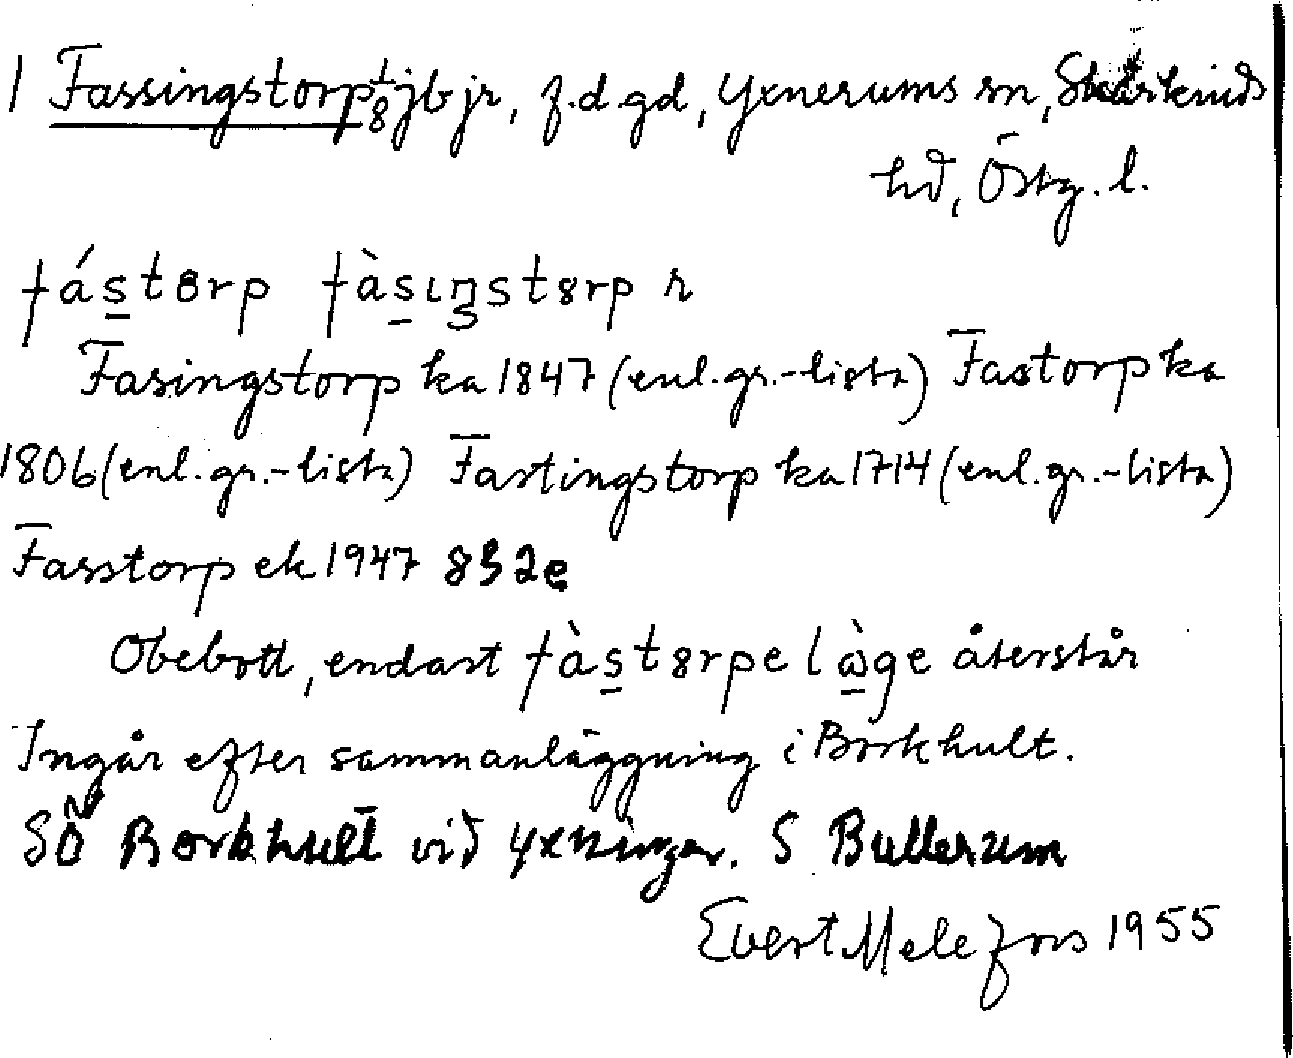 1 Fassingstorp 1/8 jb jr, f.d. gd, Yxnerums sn, Skärkinds
hd, Östg. l.
fástorp fàsiŋstorp r
Fasingstorp ka 1847 (enl. gr.-lista) Fastorp ka
1806 (enl. gr.-lista) Fastingstorp ka 1714 (enl. gr.-lista)
Fasstorp ek 1947 8S2e
Obebott, endast fàstorpe làge återstår
Ingår efter sammanläggning i Borkhult.
SÖ Borkhult vid Yxningen. S Bullerum
Evert Melefors 1955